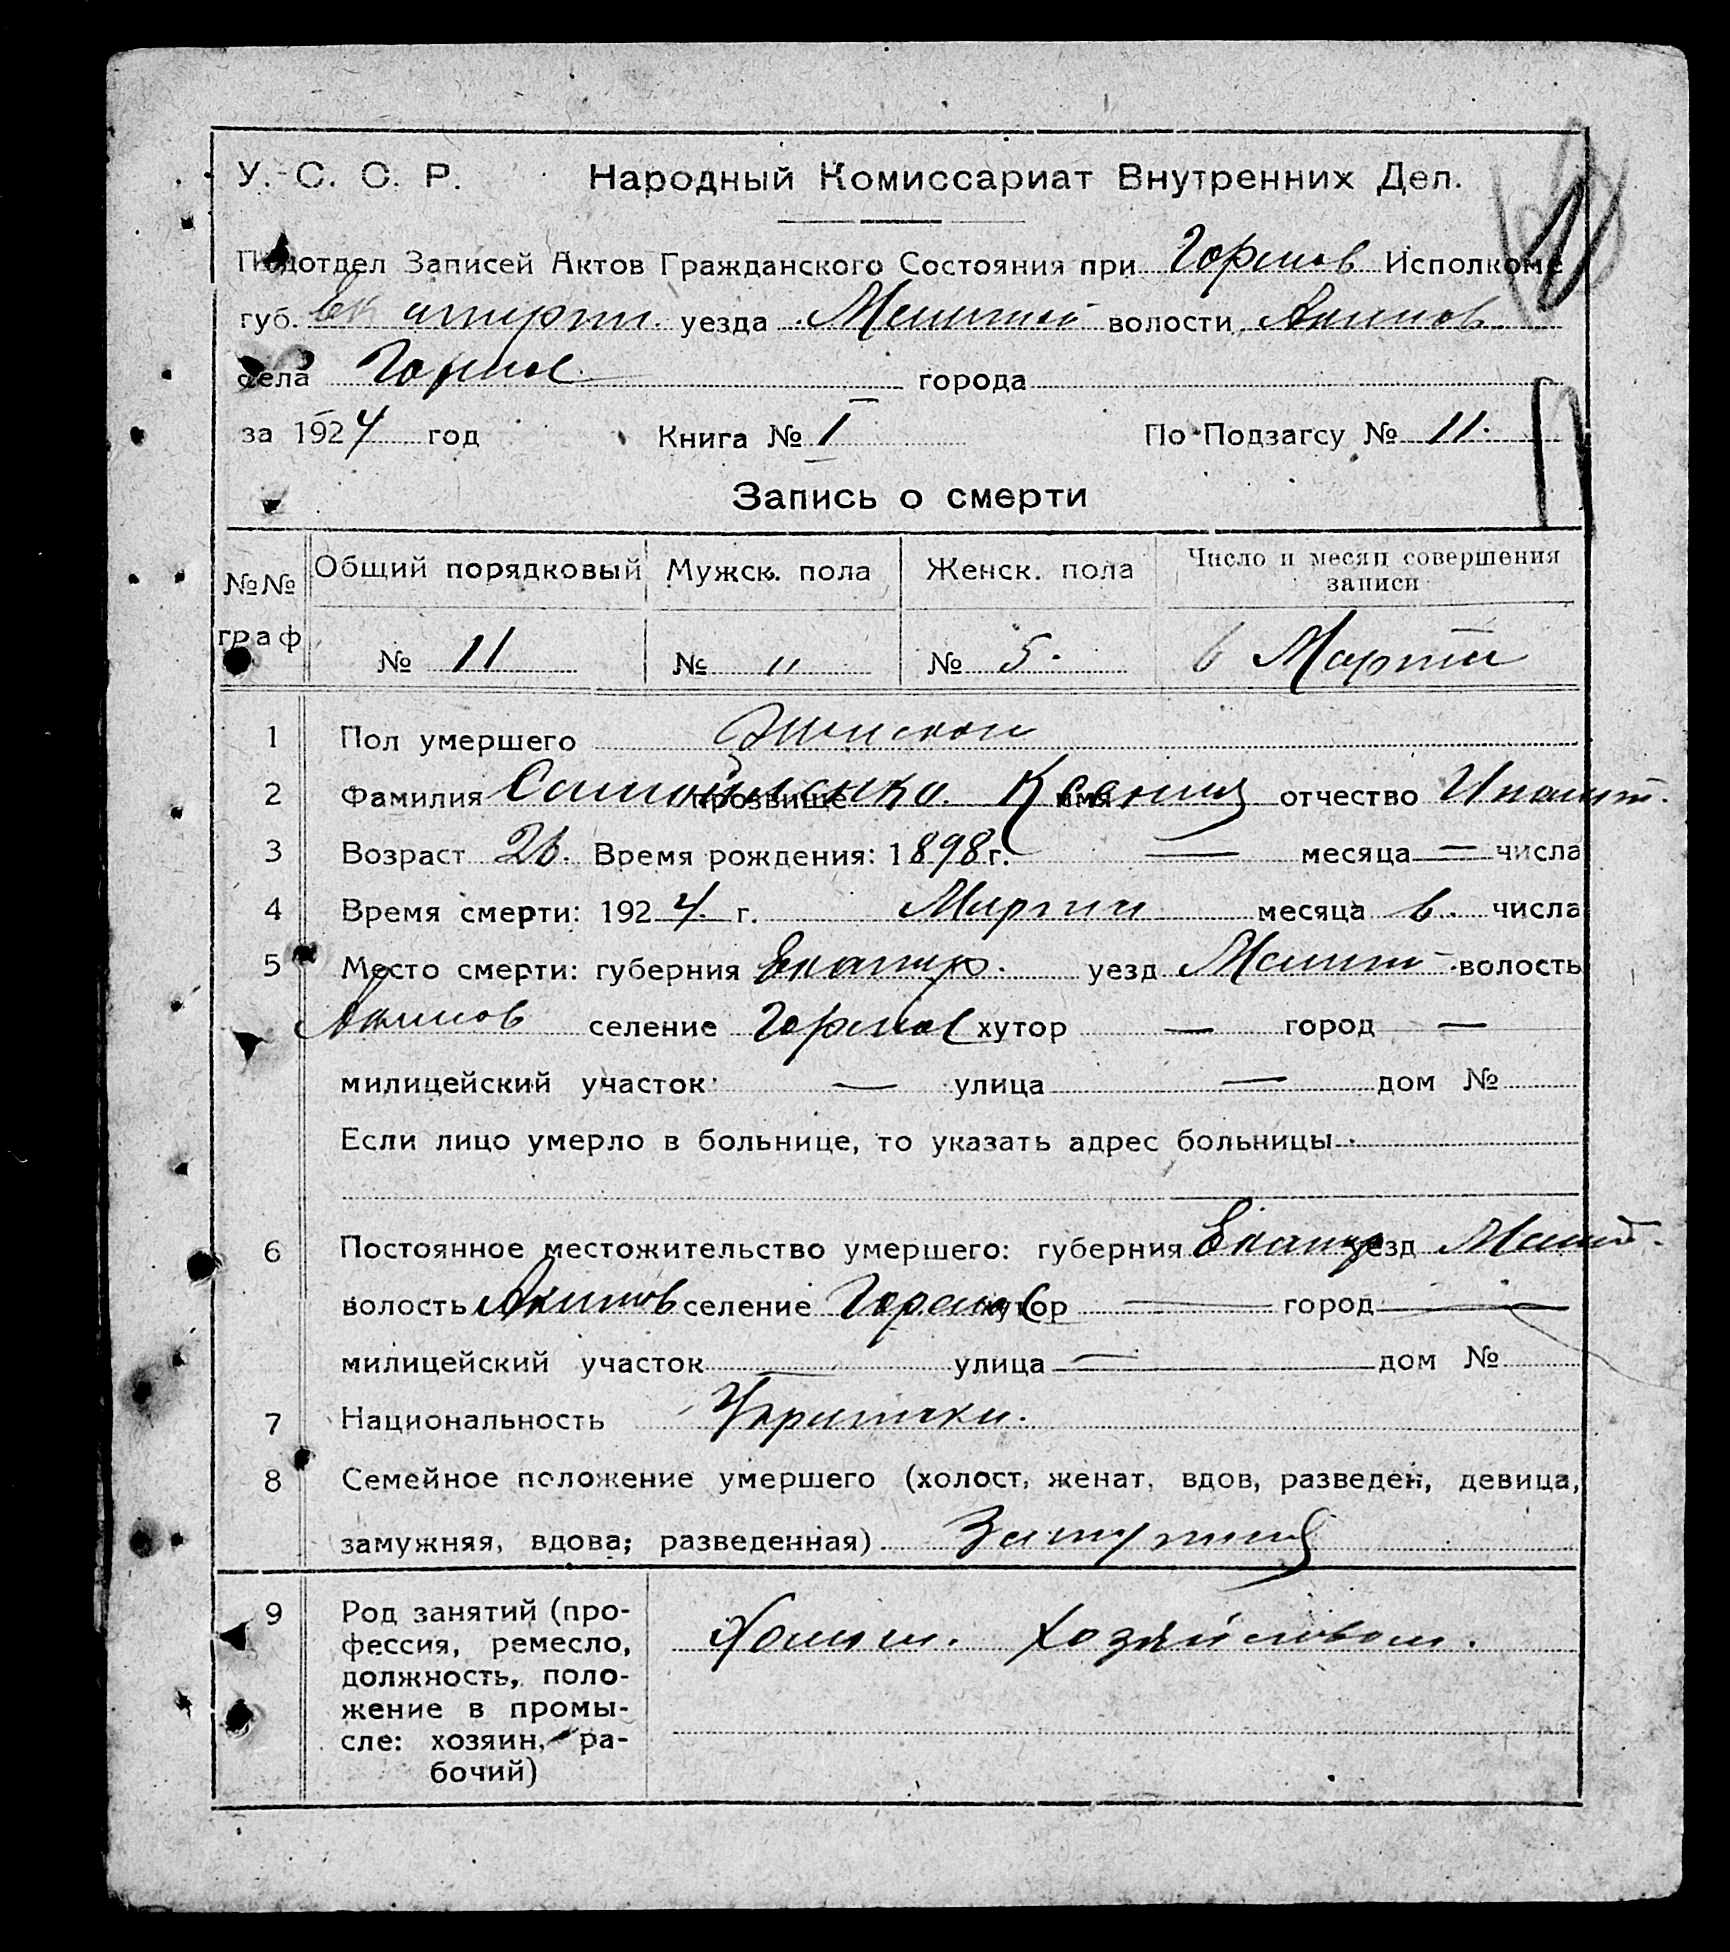 У. С. С. Р. Народный Комиссариат Внутренних Дел.
Подотдел Записей Актов Гражданского Состояния при Исполкоме
губ. уезда волости Акимов
села города
за 1924 год Книга № I По Подзагсу № 11.
Запись о смерти
№№ граф Общий порядковый Мужск. пола Женск. пола Число и месяц совершения записи
№ 11 № " № 5. 6 Марта
1 Пол умершего Женской
2 Фамилия прозвище имя Ксения отчество Ипат.
3 Возраст 26. Время рождения: 1898 г. — месяца — числа
4 Время смерти: 1924 г. Марта месяца 6. числа
5 Место смерти: губерния Екатер. уезд Мелит. волость
Акимов селение хутор — город —
милицейский участок — улица — дом №
Если лицо умерло в больнице, то указать адрес больницы
6 Постоянное местожительство умершего: губерния Екатер уезд Мелит.
волость Акимов селение хутор — город —
милицейский участок — улица — дом №
7 Национальность
8 Семейное положение умершего (холост, женат, вдов, разведен, девица,
замужняя, вдова, разведенная) Замужняя
9 Род занятий (про-
фессия, ремесло,
должность, поло-
жение в промы-
сле: хозяин, ра-
бочий)
Домаш. хозяйством.